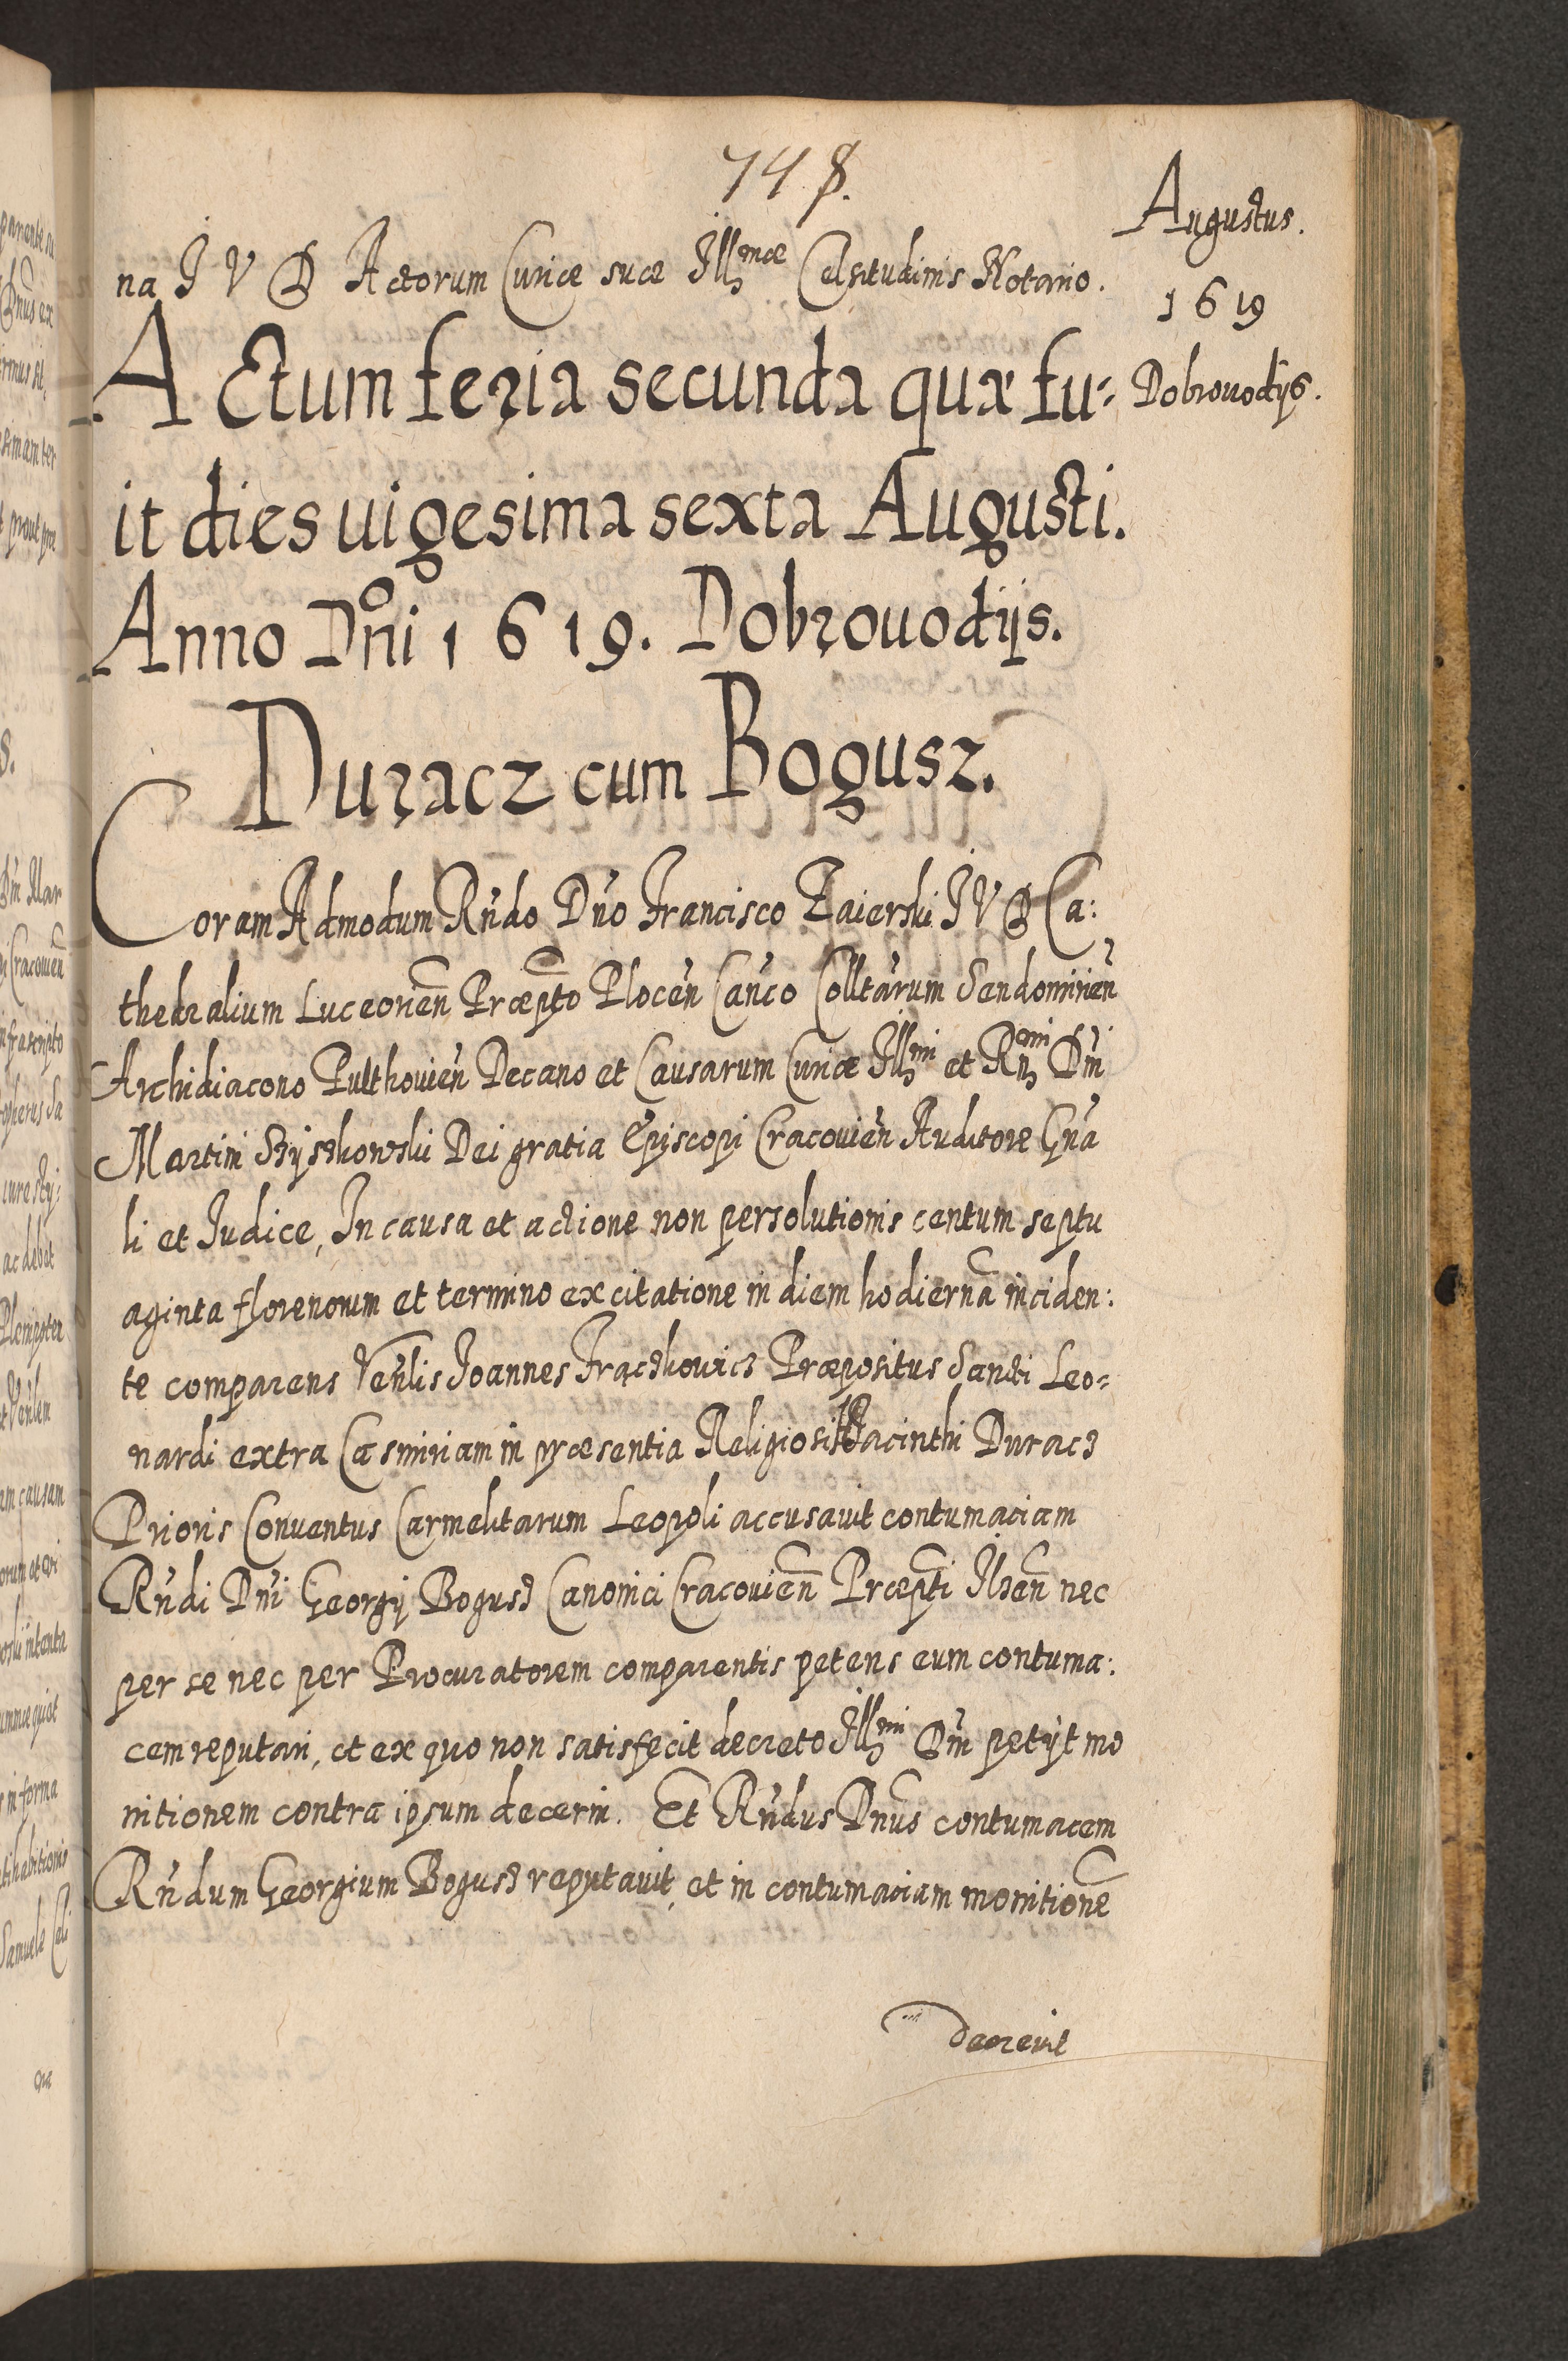 748.
Augustus.
1619
Dobrouodijs.
na I V D Actorum Curiæ suæ Illmæ Celsitudinis Notario.
Actum feria secunda quæ fu-
it dies uigesima sexta Augusti.
Anno Dñi 1619. Dobrouodijs.
Duracz cum Bogusz.
Coram Admodum Rñdo Dño Francisco Zaierski I V D Ca:
thedralium Luceorień Præpto Ploceń Cańco Colltarum Sandomirień
Archidiacono Pulthouień Decano et Causarum Curiæ Illmi et Rñmi Dñi
Martini Szyszkowski Dei gratia Episcopi Cracouień Auditore Gńa
li et Iudice, In causa et actione non persolutionis centum septu
aginta florenorum et termino ex citatione in diem hodiernã inciden:
te comparens Veńlis Ioannes Frączkouicz Præpositus Sancti Leo-
nardi extra Casimiriam in præsentia Religiosi Hiacinthi Duracz
Prioris Conuentus Carmelitarum Leopoli accusauit contumaciam
Rñdi Dñi Georgij Bogusz Canonici Cracouień Præpti Ilzeń nec
per se nec per Procuratorem comparentis petens eum contuma:
cem reputari, et ex quo non satisfecit decreto Illmi Dñi petijt mo
nitionem contra ipsum decerni. Et Rñdus Dñus contumacem
Rñdum Georgium Bogusz reputauit, et in contumaciam monitionẽ
decreuit